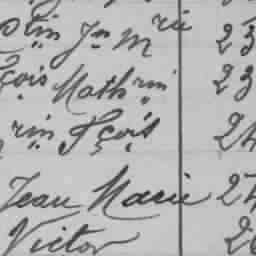 tin Jn Mrie 23
çois Mathrin 23
rin Fçois 24
Jean Marie 24
Victor 2